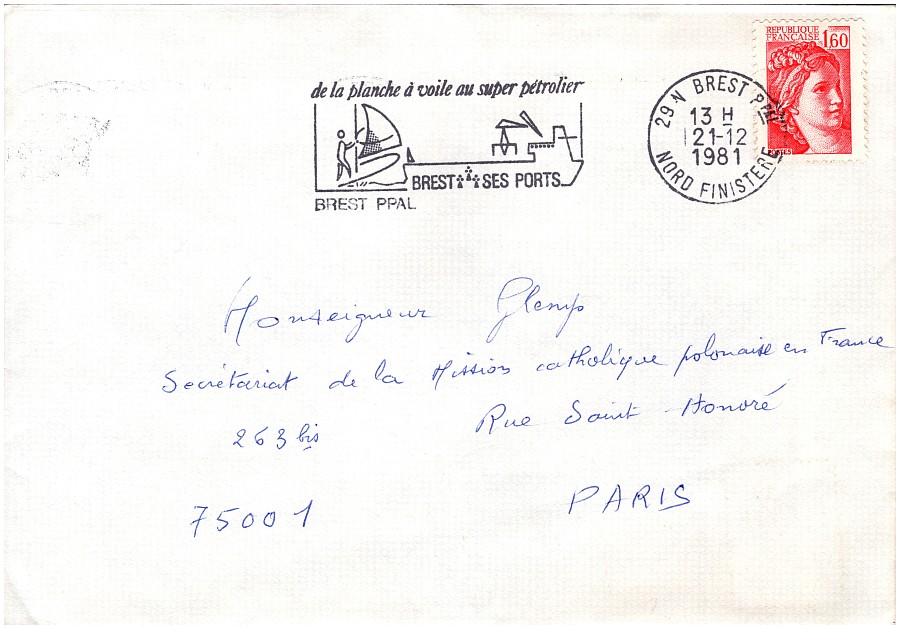 de la planche à voile au super pétrolier
BREST SES PORTS
BREST PPAL
29 N BREST PPAL
13 H
21-12
1981
NORD FINISTERE
REPUBLIQUE
FRANÇAISE 1,60
Monseigneur Glemp
Secrétariat de la Mission catholique polonaise en France
263 bis Rue Saint-Honoré
75001 PARIS